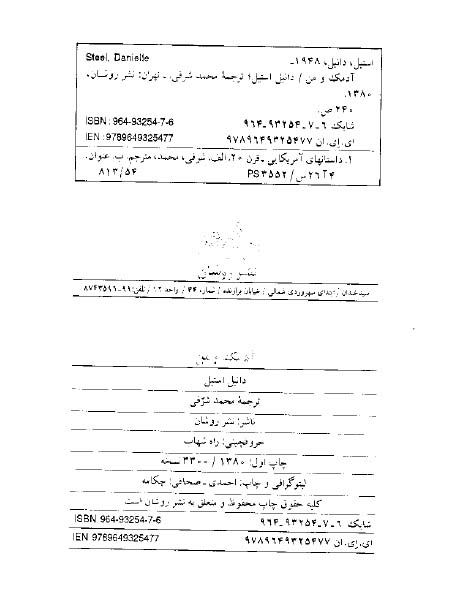 Steel, Danielle
استیل، دانیل، ۱۹۴۸ـ
آدمک و من / دانیل استیل؛ ترجمهٔ محمد شرفی. ـ تهران: نشر روشان،
۱۳۸۰.
۲۴۰ ص.
ISBN: 964-93254-7-6 شابک ۶ـ۷ـ۹۳۲۵۴ـ۹۶۴
IEN: 9789649325477 ای.ای.ان ۹۷۸۹۶۴۹۳۲۵۴۷۷
۱. داستانهای آمریکایی ـ قرن ۲۰. الف. شرفی، محمد، مترجم. ب. عنوان.
۴آ۲۶س/ PS۳۵۵۲ ۸۱۳/۵۴
نشر روشان
سیدخندان / ابتدای سهروردی شمالی / خیابان برازنده / شماره ۴۴ / واحد ۱۲ / تلفن: ۹۹ـ۸۷۴۳۵۹۱
آدمک و من
دانیل استیل
ترجمهٔ محمد شرفی
ناشر: نشر روشان
حروفچینی: راه شهاب
چاپ اول: ۱۳۸۰ / ۳۳۰۰ نسخه
لیتوگرافی و چاپ: احمدی ـ صحافی: چکامه
کلیه حقوق چاپ محفوظ و متعلق به نشر روشان است
ISBN 964-93254-7-6 شابک ۶ـ۷ـ۹۳۲۵۴ـ۹۶۴
IEN 9789649325477 ای.ای.ان ۹۷۸۹۶۴۹۳۲۵۴۷۷